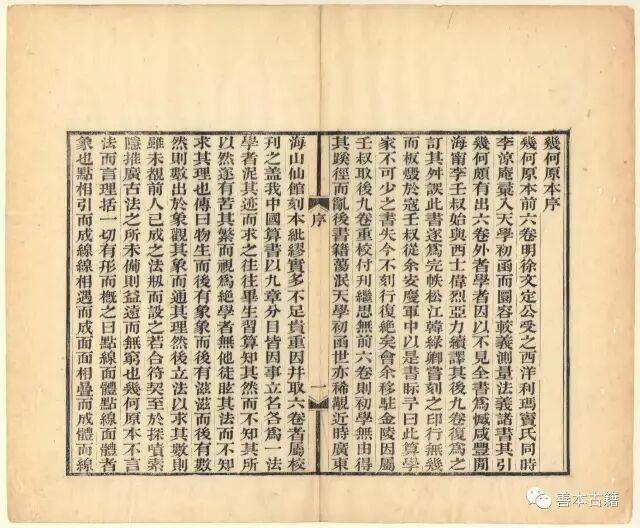 幾何原本序
幾何原本前六卷明徐文定公受之西洋利瑪竇氏同時
李涼庵彙入天學初函而圜容較義測量法義諸書其引
幾何頗有出六卷外者學者因以不見全書爲憾咸豐閒
海甯李壬叔始與西士偉烈亞力續譯其後九卷復爲之
訂其舛誤此書遂爲完帙松江韓綠卿嘗刻之印行無幾
而板燬於寇壬叔從余安慶軍中以是書眎予曰此算學
家不可少之書失今不刻行復絕矣會余移駐金陵因屬
壬叔取後九卷重校付刊繼思無前六卷則初學無由得
其蹊徑而亂後書籍蕩泯天學初函世亦稀覯近時廣東
序
一
海山仙館刻本紕繆實多不足貴重因并取六卷者屬校
刊之蓋我中國算書以九章分目皆因事立名各爲一法
學者泥其迹而求之往往畢生習算知其然而不知其所
以然遂有苦其繁而視爲絕學者無他徒眩其法而不知
求其理也傳曰物生而後有象象而後有滋滋而後有數
然則數出於象觀其象而通其理然後立法以求其數則
雖未覩前人已成之法剏而設之若合符契至於探嘖索
隱推廣古法之所未備則益遠而無窮也幾何原本不言
法而言理括一切有形而概之曰點線面體點線面體者
象也點相引而成線線相遇而成面面相疊而成體而線
善本古籍